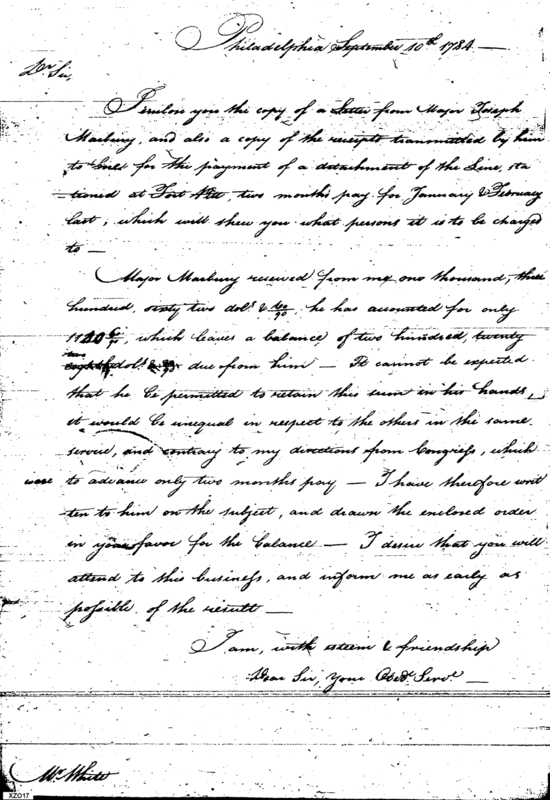 Philadelphia September 10th 1784 —
Dr. Sir,
I enclose you the copy of a Letter from Major Joseph
Marbury, and also a copy of the receipts transmitted by him
to for the payment of a detachment of the Line, sta
tioned at Fort Pitt, two months pay for January & February
last, which will shew you what persons it is to be charged
to —
Major Marbury received from me one thousand, three
hundred, sixty two dolrs & 60/90, he has accounted for only
1140 6/90, which leaves a balance of two hundred, twenty
two dolrs due from him — It cannot be expected
that he be permitted to retain this sum in his hands,
it would be unequal in respect to the others in the same
service, and contrary to my directions from Congress, which
were to advance only two months pay — I have therefore writ
ten to him on the subject, and drawn the enclosed order
in your favor for the balance — I desire that you will
attend to this business, and inform me as early as
possible of the result —
I am, with esteem & friendship
Dear Sir, Your Obedt. Servt. —
Mr. White
XZ017